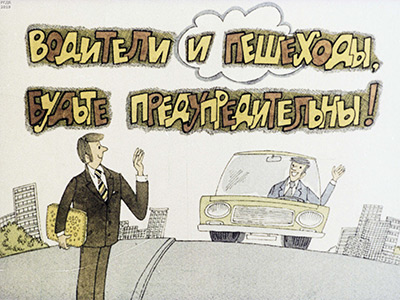 ВОДИТЕЛИ И ПЕШЕХОДЫ,
БУДЬТЕ ПРЕДУПРЕДИТЕЛЬНЫ!